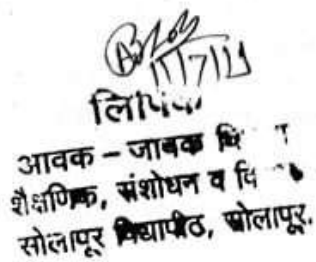 लिपिक
आवक – जावक वि
शैक्षणिक, संशोधन व वि
सोलापूर विद्यापीठ, सोलापूर.